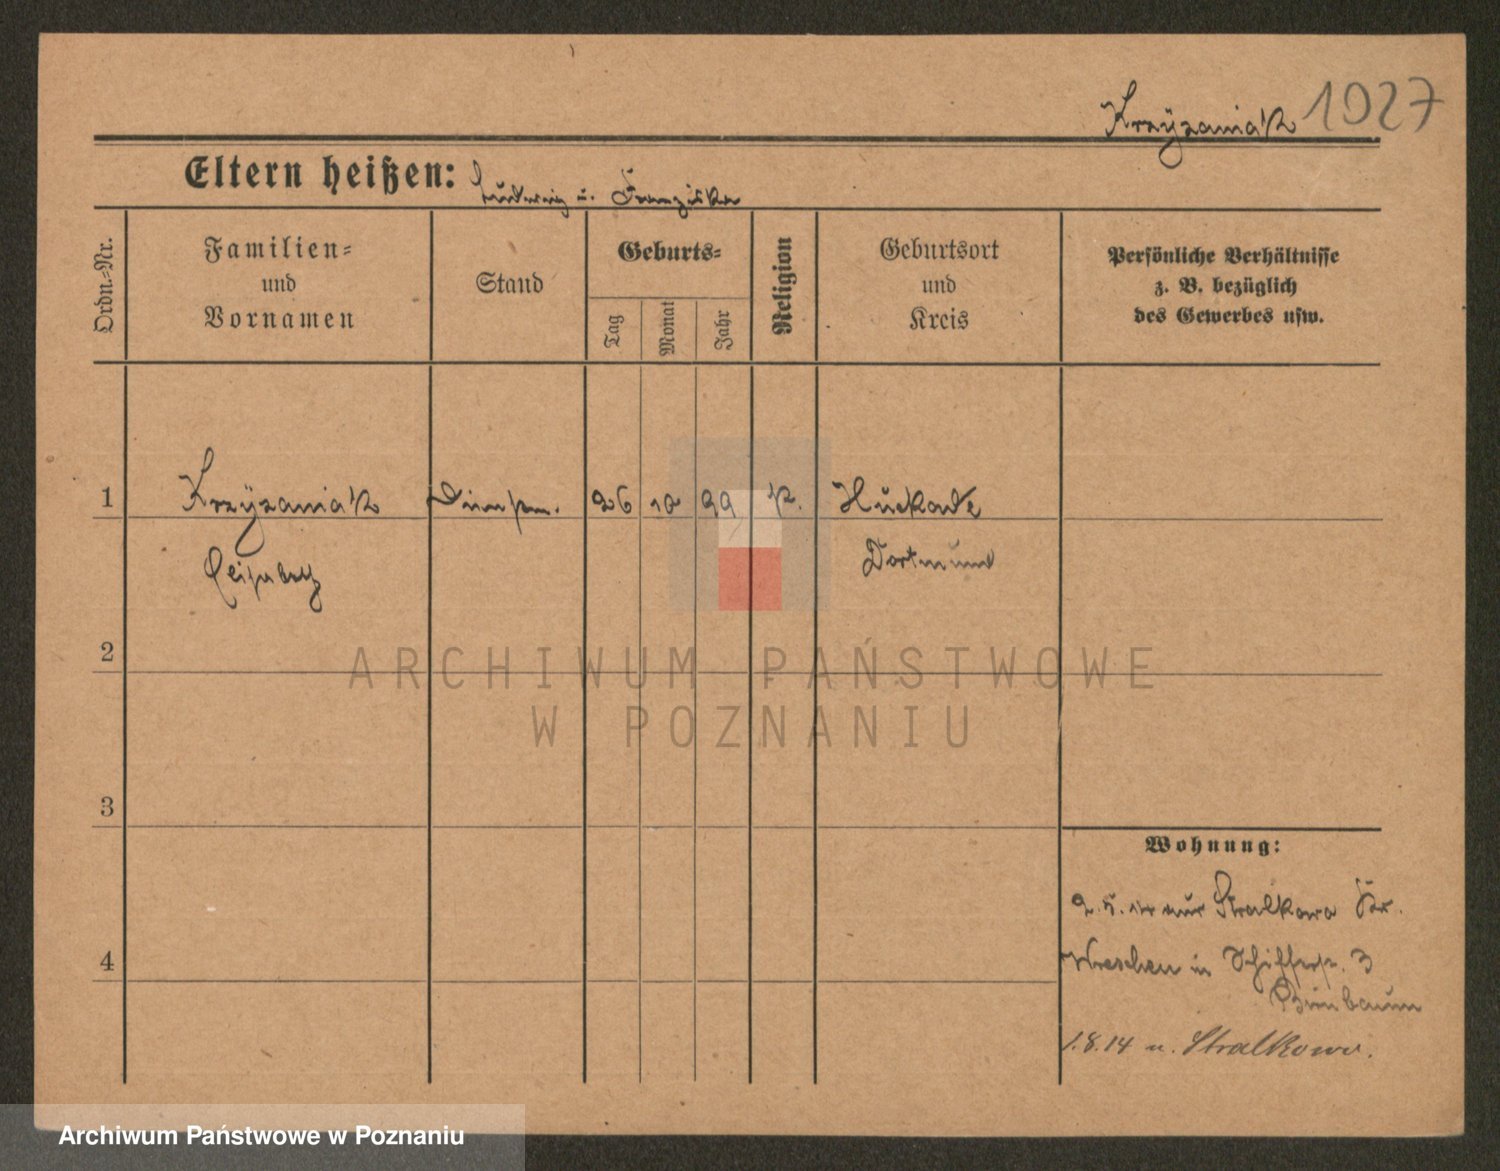 Krzyzaniak 1027
Eltern heißen: Ludwig u. Franziska
Ordn.=Nr.
Familien=
und
Vornamen
Stand
Geburts=
Tag
Monat
Jahr
Religion
Geburtsort
und
Kreis
Persönliche Verhältnisse
z. B. bezüglich
des Gewerbes usw.
1 Krzÿzaniak 26 10 99 k. Huckarde
Elisabeth Dortmund
2
ARCHIWUM PAŃSTWOWE
W POZNANIU
3
Wohnung:
2.5.14 aus Stralkowo Kr.
4 Wreschen in Schifferstr. 3
Birnbaum
1.8.14 n. Stralkowo.
Archiwum Państwowe w Poznaniu